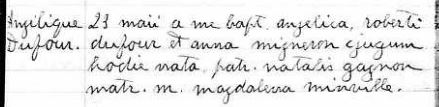 Angélique 23 maii a me bapt. angelica, roberti
Dufour. dufour et anna migneron cjugum
hodie nata, patr. natalis gagnon
matr. m. magdalena minville.